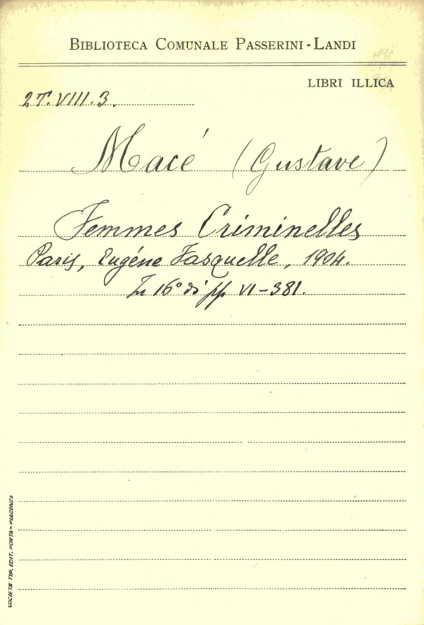 BIBLIOTECA COMUNALE PASSERINI-LANDI
LIBRI ILLICA
2T.VIII.3.
Macé (Gustave)
Femmes Criminelles
Paris, Eugéne Fasquelle, 1904.
In 16° di pp VI-381.
SOCIETÀ TIP. EDIT. PORTA - PIACENZA